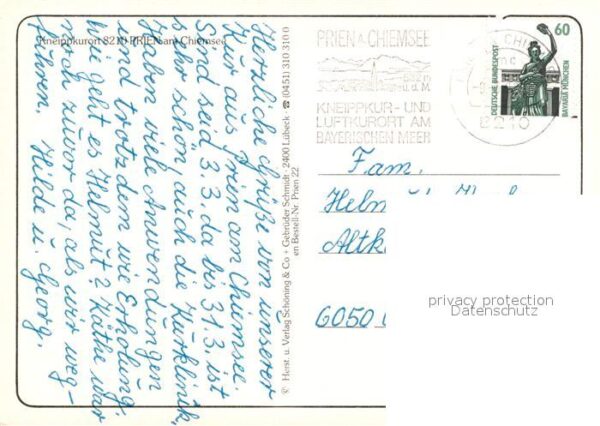 Kneippkurort 8210 PRIEN am Chiemsee
Herzliche Grüße von unserer
Kur aus Prien am Chiemsee.
Sind seid 3.3. da bis 31.3. ist
sehr schön, auch die Kurklinik,
haben viele Anwendungen
und trotzdem wie Erholung.
Wie geht es Helmut? Käthe war
noch zuvor da, als wir weg-
fuhren. Hilde u. Georg.
© Herst. u. Verlag Schöning & Co + Gebrüder Schmidt · 2400 Lübeck · ☎ (0451) 310 310 0
en Bestell-Nr. Prien 22
PRIEN A. CHIEMSEE
532 m
ü. d. M.
KNEIPPKUR- UND
LUFTKURORT AM
BAYERISCHEN MEER
8210
60
DEUTSCHE BUNDESPOST
BAVARIA MÜNCHEN
Fam.
Helm
Altk
6050
privacy protection
Datenschutz